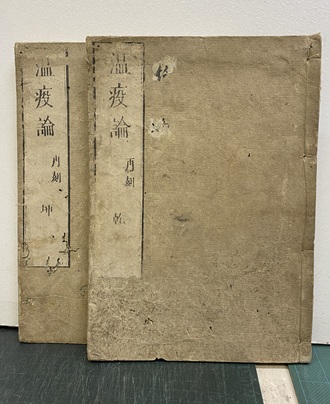 温疫論
再刻
乾
温疫論
再刻
坤